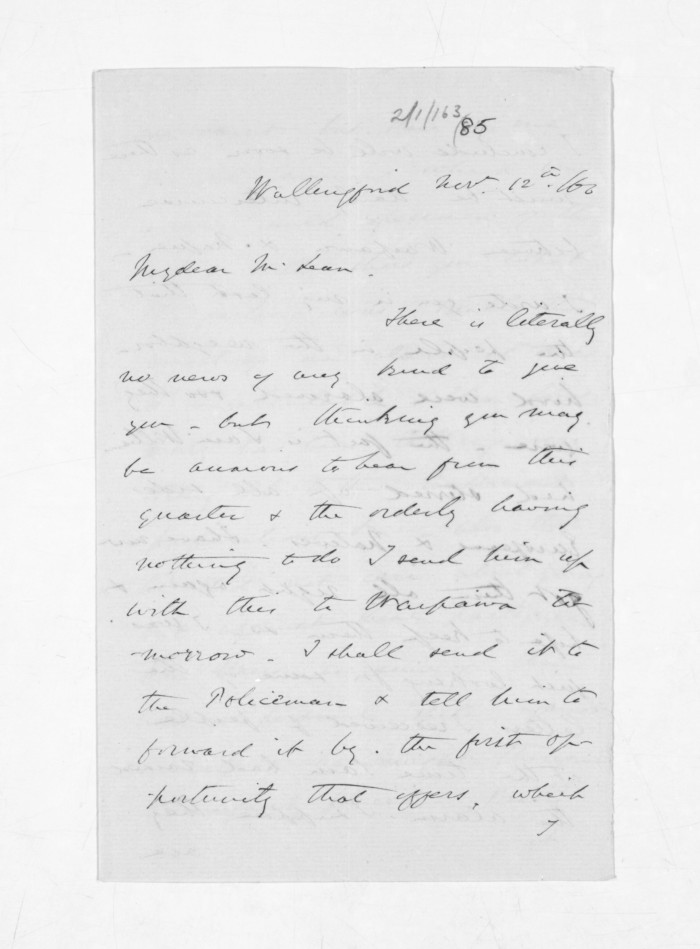 2/1/163/85
Wallingford Nov. 12th /66
My dear McLean.
There is literally
no news of any kind to give
you - but thinking you may
be anxious to hear from this
quarter & the orderly having
nothing to do I send him up
with this to Waipawa to
-morrow. I shall send it to
the Policeman & tell him to
forward it by. the first op-
portunity that offers, which
I